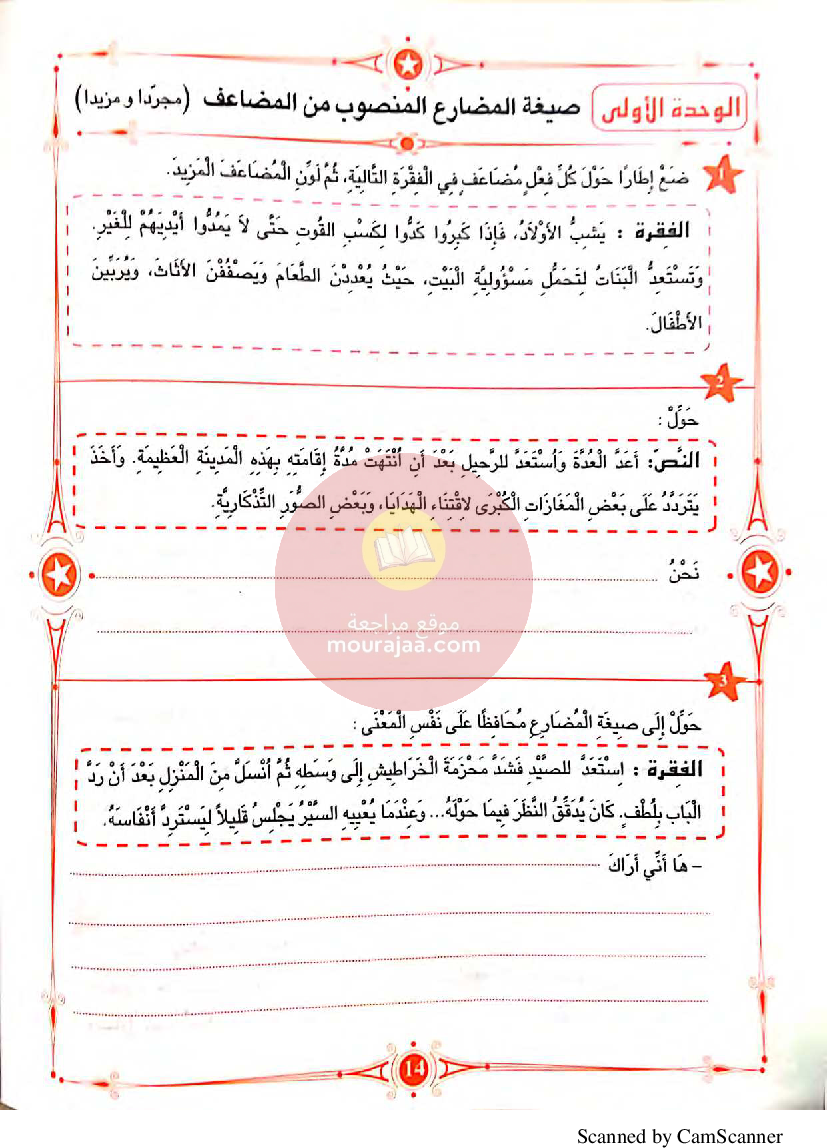 الوحدة الأولى صيغة المضارع المنصوب من المضاعف (مجرّدا و مزيدا)
1 ضَعْ إِطَارًا حَوْلَ كُلِّ فِعْلٍ مُضَاعَفٍ فِي الْفِقْرَةِ التَّالِيَةِ، ثُمَّ لَوِّنِ الْمُضَاعَفَ الْمَزِيدَ.
الفقرة : يَشِبُّ الأَوْلاَدُ، فَإِذَا كَبِرُوا كَدُّوا لِكَسْبِ القُوتِ حَتَّى لاَ يَمُدُّوا أَيْدِيَهُمْ لِلْغَيْرِ.
وَتَسْتَعِدُّ الْبَنَاتُ لِتَحَمُّلِ مَسْؤُولِيَّةِ الْبَيْتِ، حَيْثُ يُعْدِدْنَ الطَّعَامَ وَيَصْفُفْنَ الأَثَاثَ، وَيُرَبِّينَ
الأَطْفَالَ.
2
حَوِّلْ :
النَّصّ: أَعَدَّ الْعُدَّةَ وَاُسْتَعَدَّ للرَّحِيلِ بَعْدَ أَنِ اُنْتَهَتْ مُدَّةُ إِقَامَتِهِ بِهَذِهِ الْمَدِينَةِ الْعَظِيمَةِ. وَأَخَذَ
يَتَرَدَّدُ عَلَى بَعْضِ الْمَغَازَاتِ الْكُبْرَى لاِقْتِنَاءِ الْهَدَايَا، وَبَعْضِ الصُّوَرِ التَّذْكَارِيَّةِ.
نَحْنُ
موقع مراجعة
mourajaa.com
3
حَوِّلْ إِلَى صِيغَةِ الْمُضَارِعِ مُحَافِظًا عَلَى نَفْسِ الْمَعْنَى :
الفقرة : اِسْتَعَدَّ للصَّيْدِ فَشَدَّ مَحْزَمَةَ الْخَرَاطِيشِ إِلَى وَسَطِهِ ثُمَّ اُنْسَلَّ مِنَ الْمَنْزِلِ بَعْدَ أَنْ رَدَّ
الْبَابَ بِلُطْفٍ. كَانَ يُدَقِّقُ النَّظَرَ فِيمَا حَوْلَهُ... وَعِنْدَمَا يُعْيِيهِ السَّيْرُ يَجْلِسُ قَلِيلاً لِيَسْتَرِدَّ أَنْفَاسَهُ.
- هَا أَنِّي أَرَاكَ
14
Scanned by CamScanner